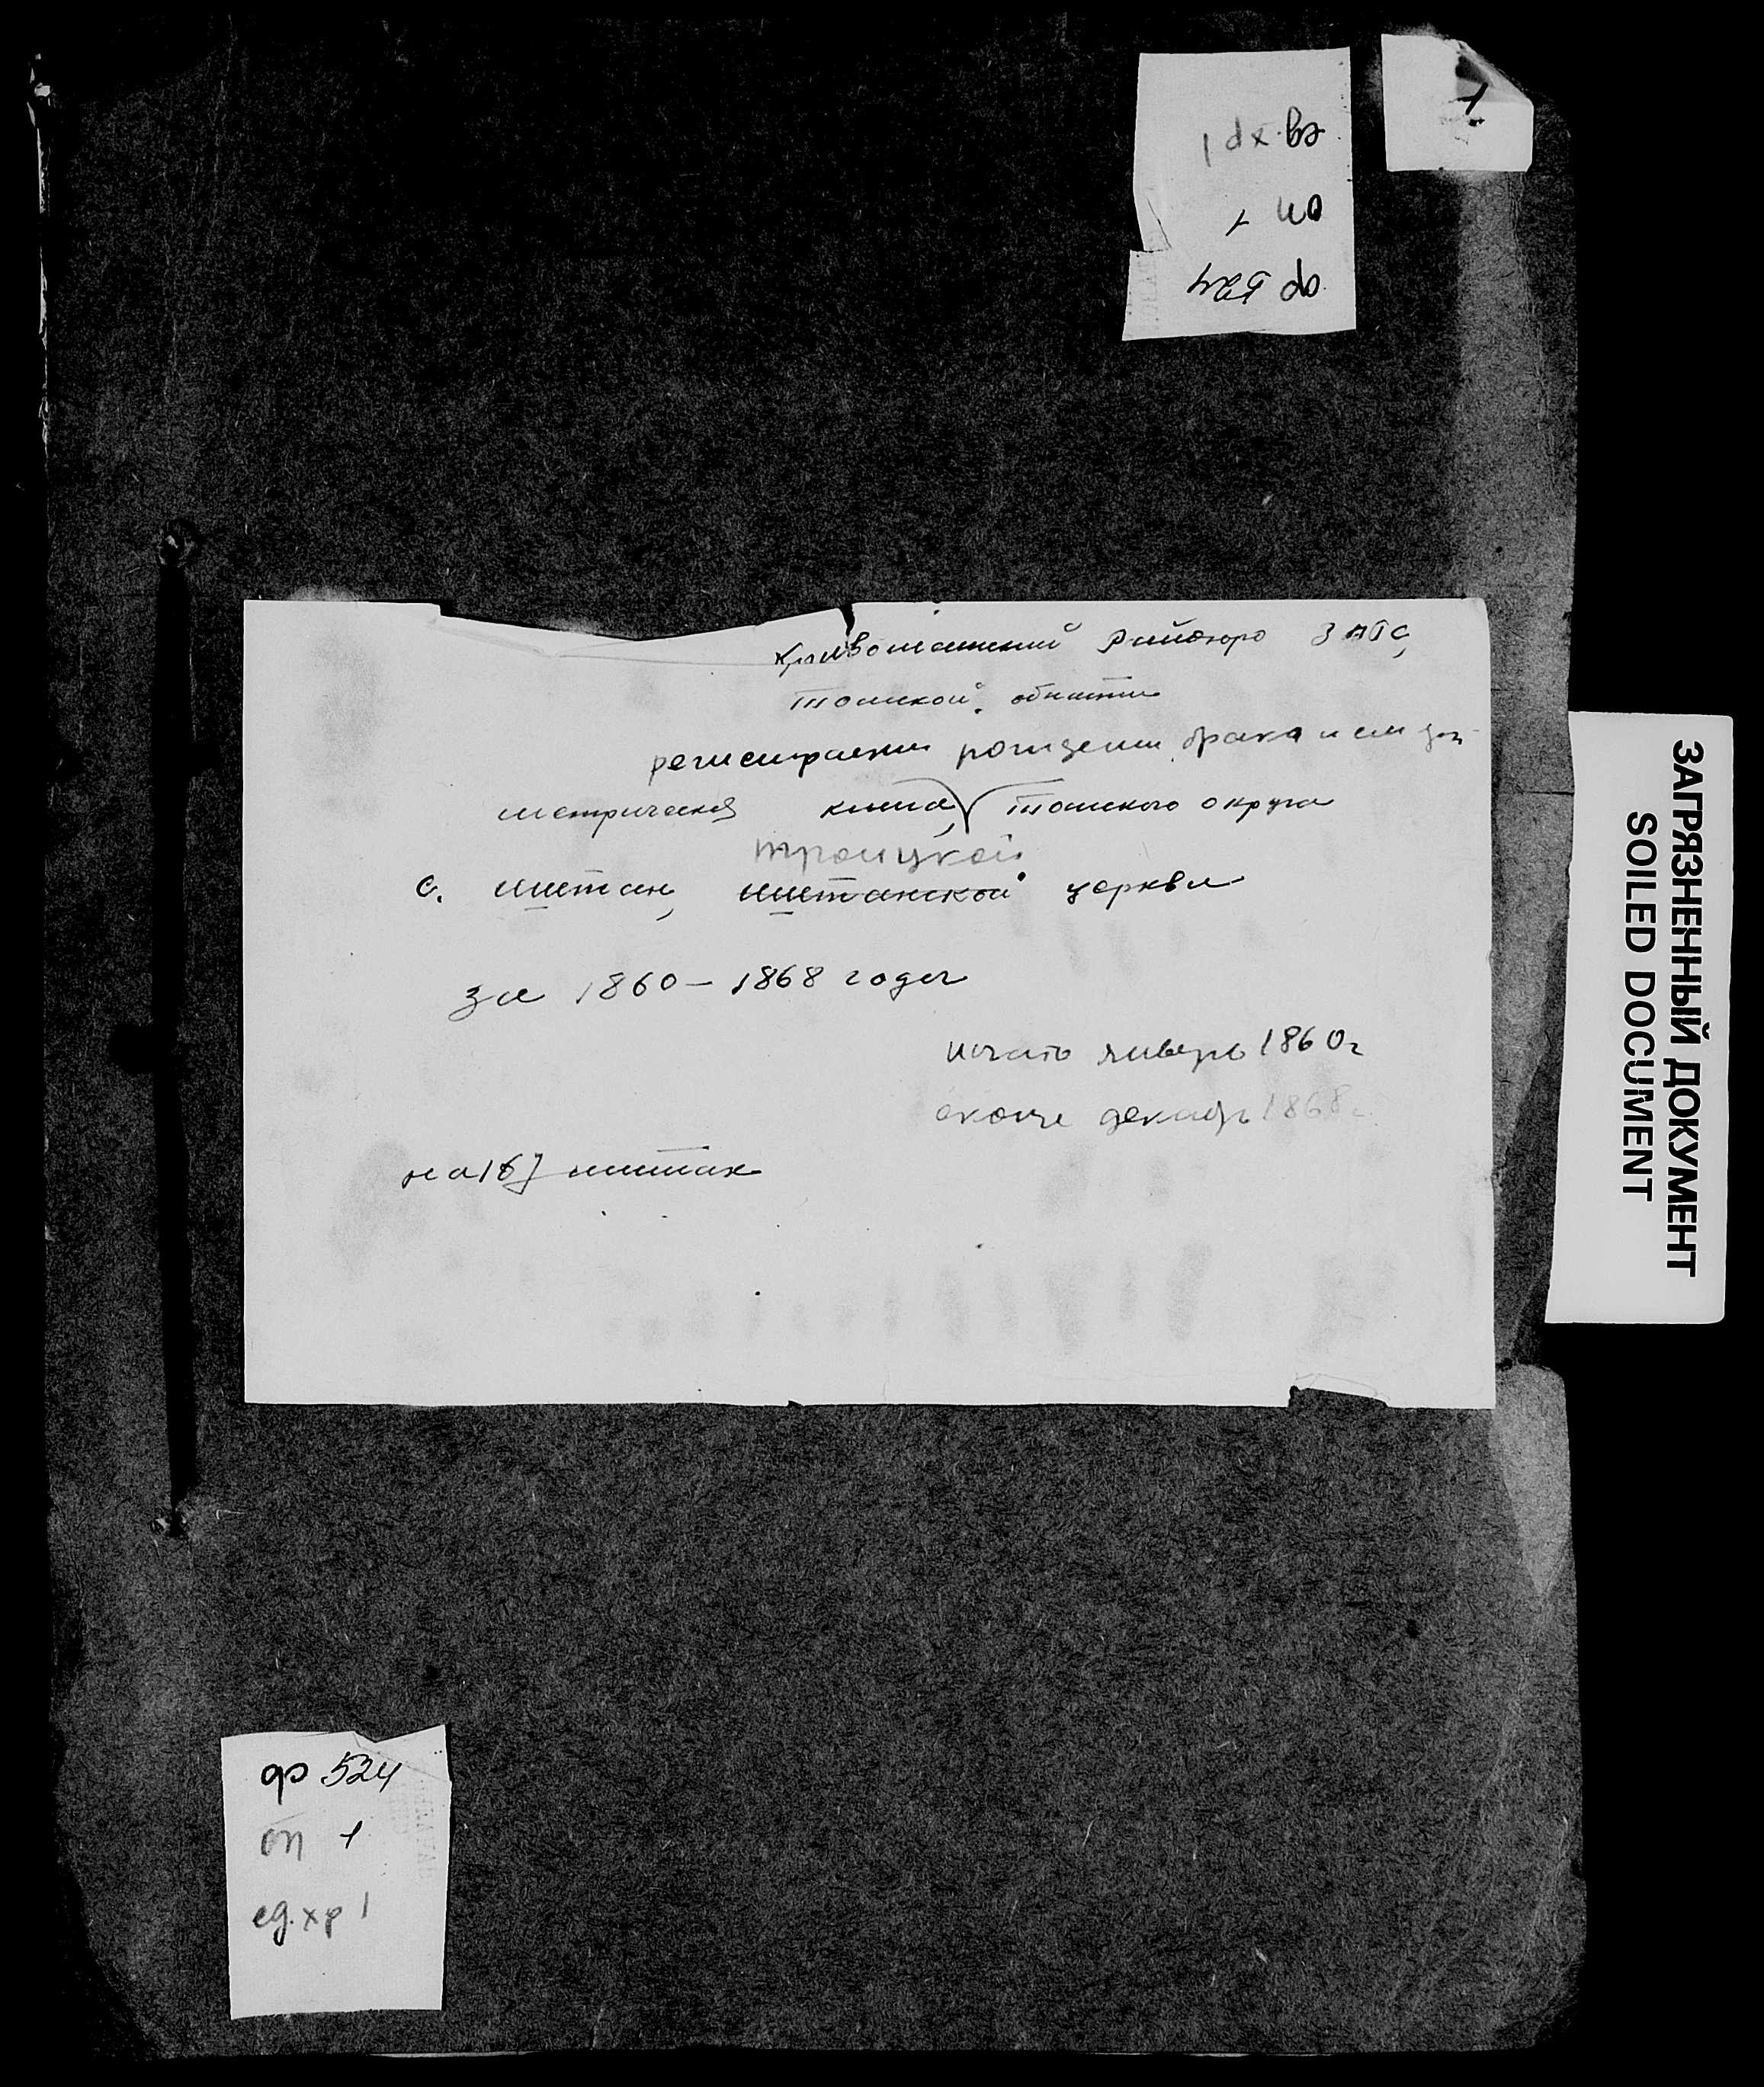 ед. хр 1
оп 1
ф 524
1
Кривошеинский Райбюро ЗАГС,
Томской области
регистрации рождении, брака и
метрическая книга, Томского округа
троицкой
с. Иштан, Иштанской церкви
за 1860 – 1868 годы
начато январь 1860г
оконче декабр 1868г.
на 167 листах
ЗАГРЯЗНЕННЫЙ ДОКУМЕНТ
SOILED DOCUMENT
ф 524
оп 1
ед. хр 1